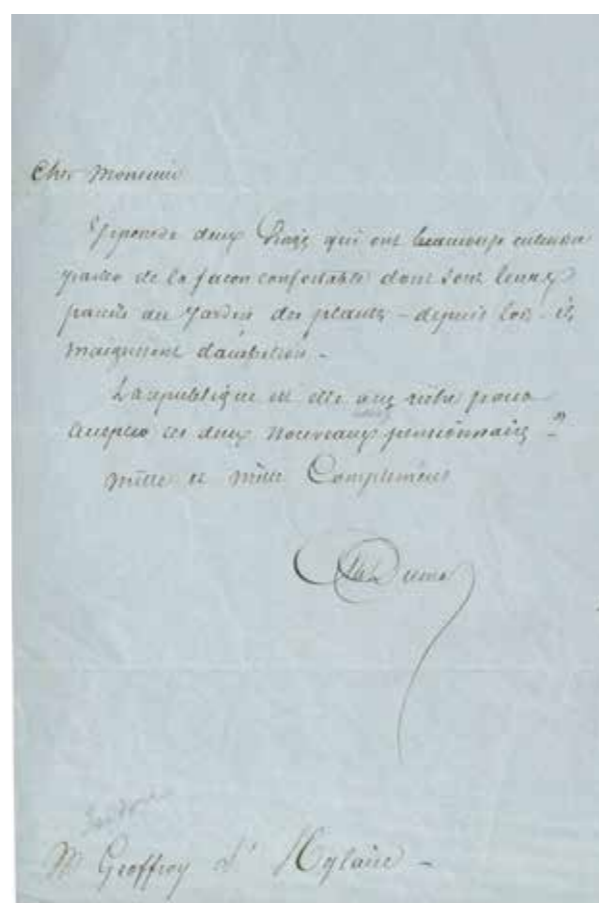 Cher Monsieur
Je possède deux qui ont beaucoup entendu
parler de la façon confortable dont sont leurs
parents au Jardin des plantes – depuis lors ils
maigrissent d'ambition –
La république est elle assez riche pour
accepter ces deux nouveaux pensionnaires – ?
Mille et mille Compliments
Al Dumas
Isidore
Mr Geoffroy St Hylaire –